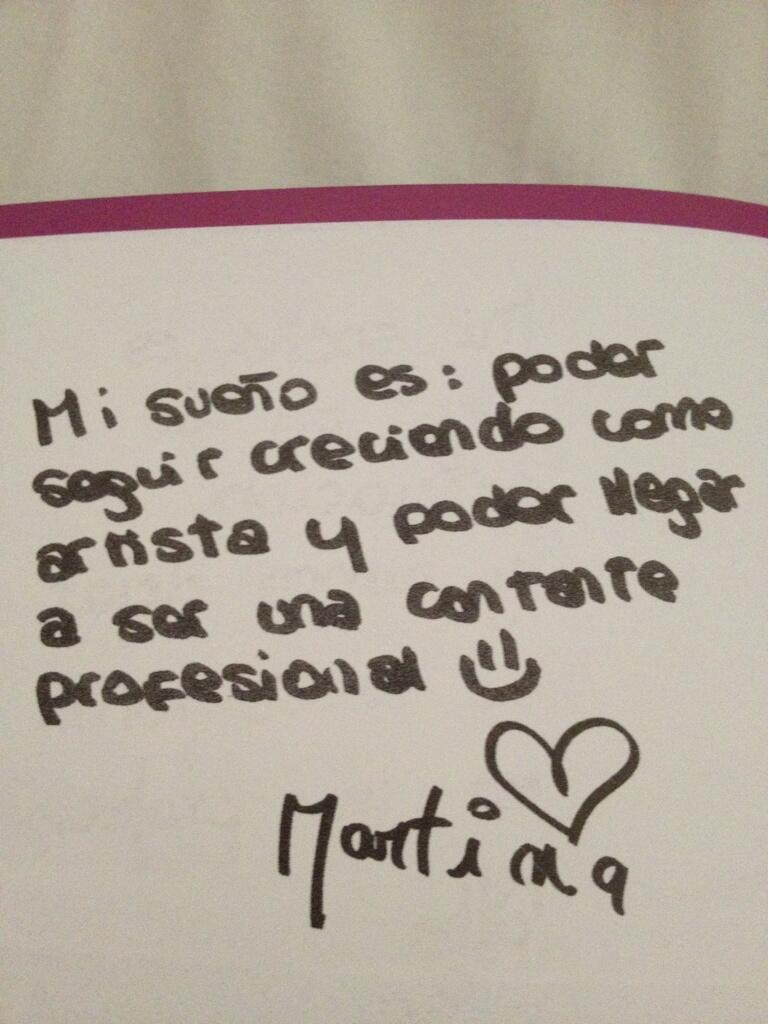 Mi sueño es: poder
seguir creciendo como
artista y poder llegar
a ser una cantante
profesional
Martina